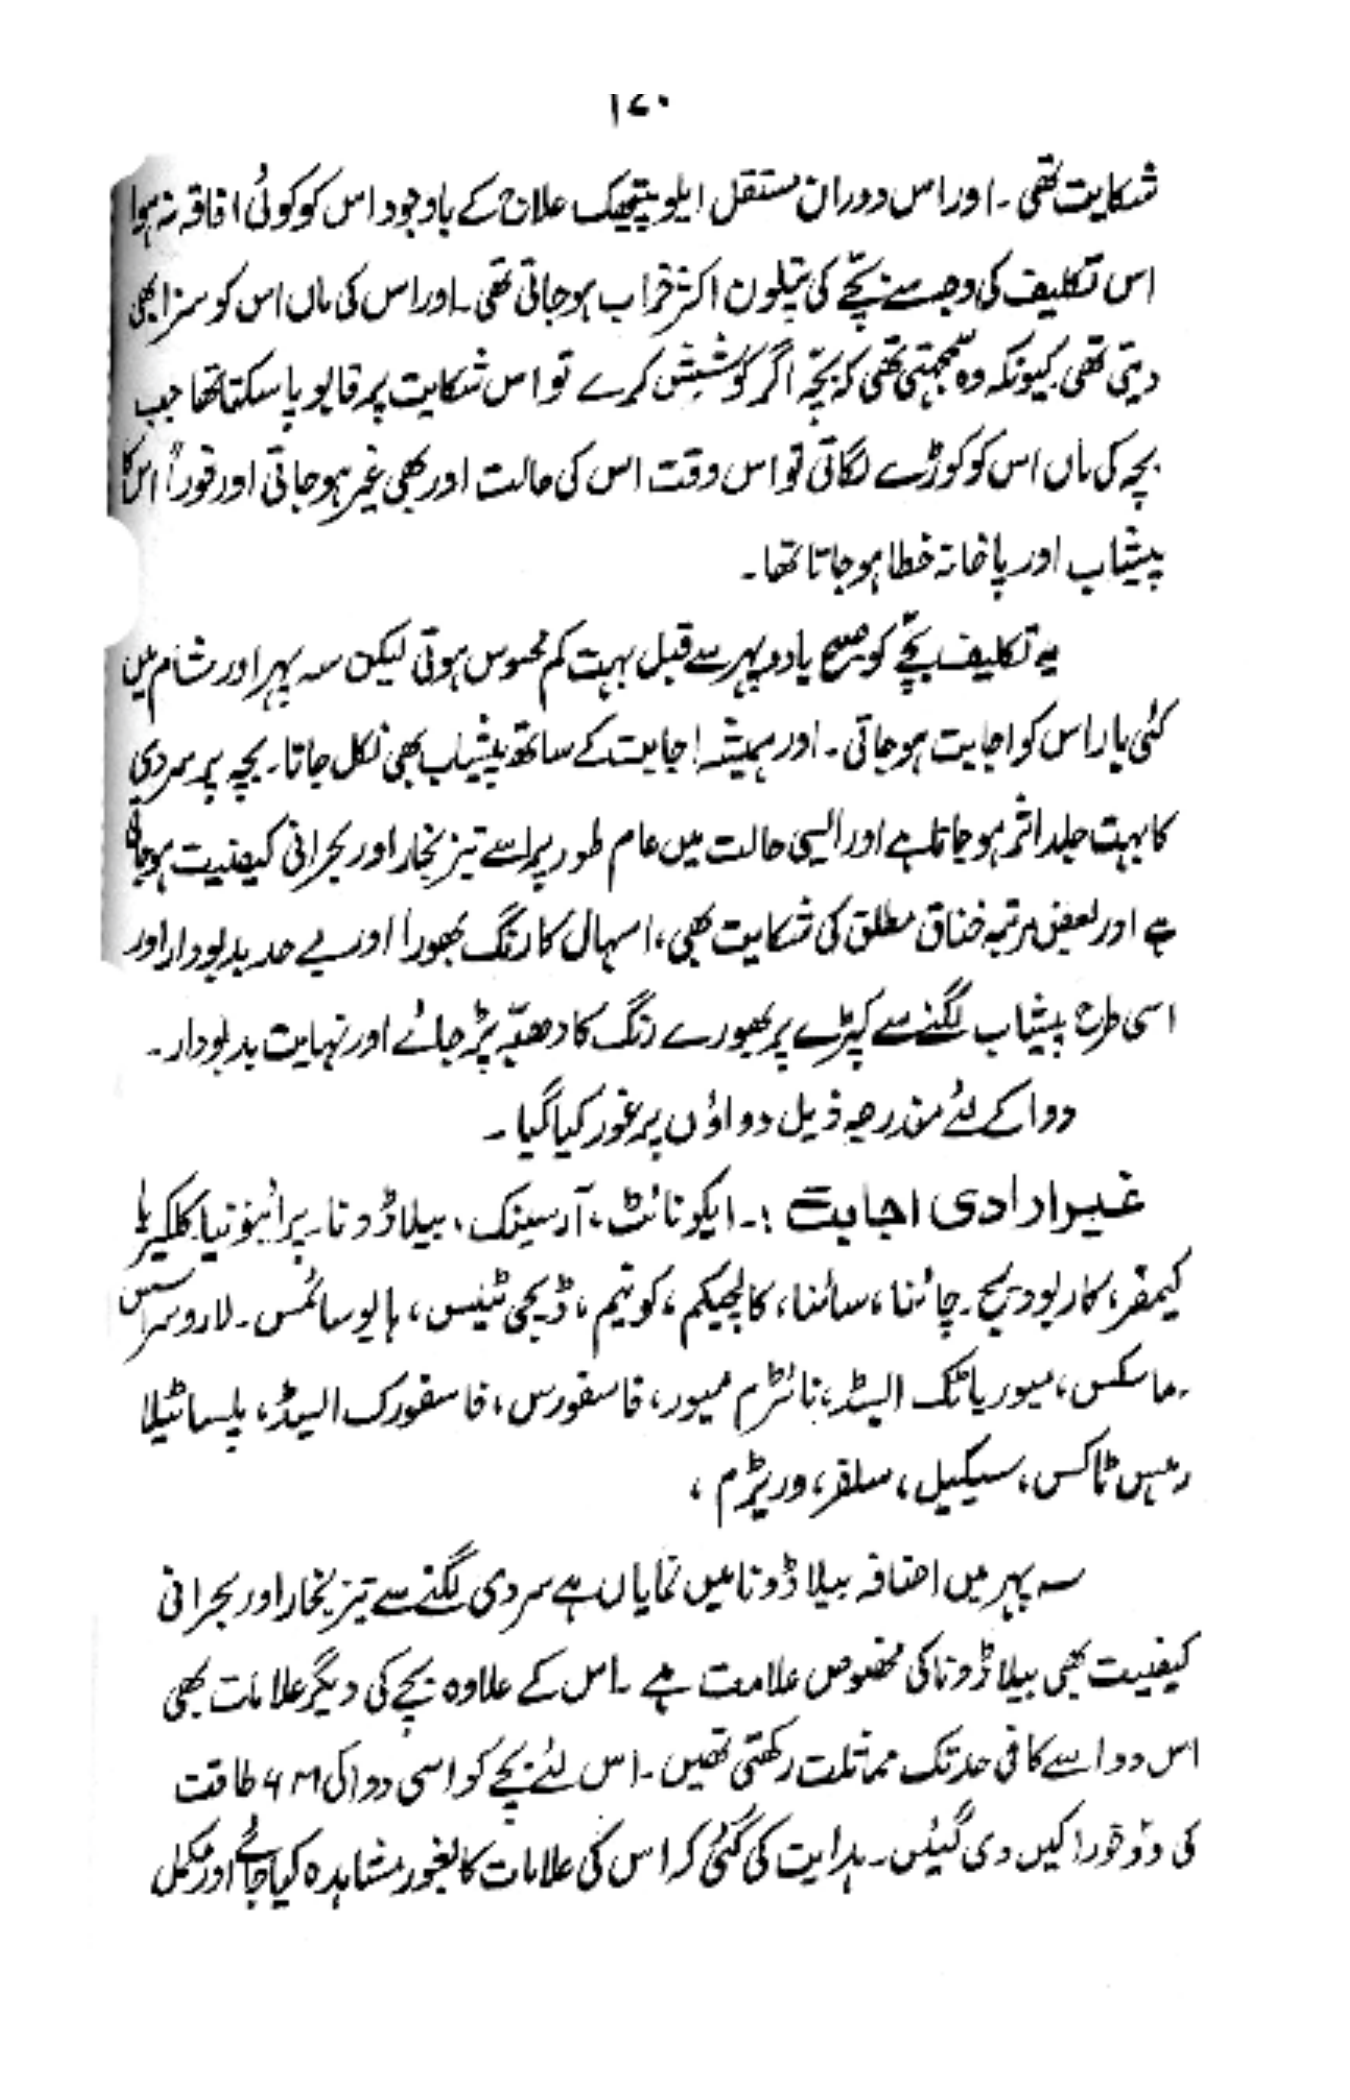 ۱۷۰
شکایت تھی ۔ اور اس دوران مستقل ایلوپیتھک علاج کے باوجود اس کو کوئی افاقہ نہ ہوا
اس تکلیف کی وجہ سے بچّے کی پتلون اکثر خراب ہو جاتی تھی ۔ اور اس کی ماں اس کو سزا بھی
دیتی تھی کیونکہ وہ سمجھتی تھی کہ بچّہ اگر کوشش کرے تو اس شکایت پر قابو پا سکتا تھا جب
بچہ کی ماں اس کو کوڑے لگاتی تو اس وقت اس کی حالت اور بھی غیر ہو جاتی اور فوراً اس کا
پیشاب اور پاخانہ خطا ہو جاتا تھا ۔
یہ تکلیف بچّے کو صبح یا دوپہر سے قبل بہت کم محسوس ہوتی لیکن سہ پہر اور شام میں
کئی بار اس کو اجابت ہو جاتی ۔ اور ہمیشہ اجابت کے ساتھ پیشاب بھی نکل جاتا ۔ بچہ پر سردی
کا بہت جلد اثر ہو جاتا ہے اور ایسی حالت میں عام طور پر اسے تیز بخار اور بحرانی کیفیت ہو جاتی
ہے اور بعض مرتبہ خناق مطلق کی شکایت بھی ، اسہال کا رنگ بھورا اور بے حد بدبودار اور
اسی طرح پیشاب لگنے سے کپڑے پر بھورے رنگ کا دھبّہ پڑ جائے اور نہایت بدبودار ۔
دوا کے لئے مندرجہ ذیل دواؤں پر غور کیا گیا ۔
غیر ارادی اجابت :۔ ایکونائٹ ، آرسینک ، بیلاڈونا ۔ برائیونیا کلکیریا
کیمفر ، کاربوویج ۔ چائنا ، سائنا ، کالچیکم ، کونیم ، ڈیجی ٹیلس ، ہایوسائمس ۔ لاروسراسس
ماسکس ، میوریاٹک ایسڈ ، نائٹرم میور ، فاسفورس ، فاسفورک ایسڈ ، پلساٹیلا
رہس ٹاکس ، سیکیل ، سلفر ، وریٹرم ،
سہ پہر میں اضافہ بیلاڈونا میں نمایاں ہے سردی لگنے سے تیز بخار اور بحرانی
کیفیت بھی بیلاڈونا کی مخصوص علامت ہے ۔ اس کے علاوہ بچے کی دیگر علامات بھی
اس دوا سے کافی حد تک مماثلت رکھتی تھیں ۔ اس لئے بچے کو اسی دوا کی طاقت
کی دو خوراکیں دی گئیں ۔ ہدایت کی گئی کہ اس کی علامات کا بغور مشاہدہ کیا جائے اور مکمل